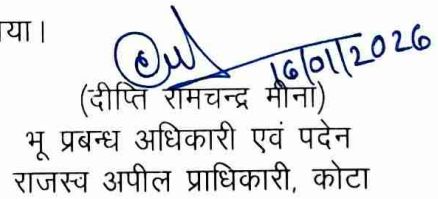 या।
16/01/2026
(दीप्ति रामचन्द्र मीना)
भू प्रबन्ध अधिकारी एवं पदेन
राजस्व अपील प्राधिकारी, कोटा